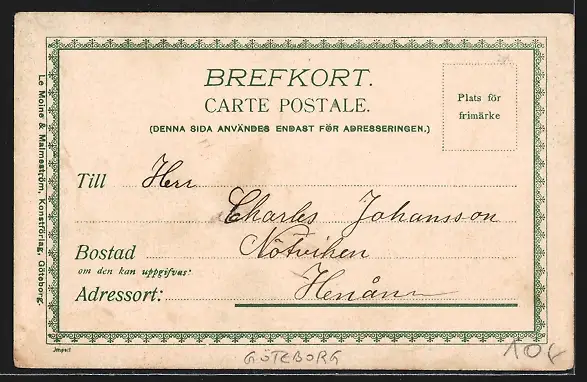 BREFKORT.
CARTE POSTALE.
(DENNA SIDA ANVÄNDES ENDAST FÖR ADRESSERINGEN.)
Plats för
frimärke
Till Herr
Charles Johansson
Bostad Nötviken
om den kan uppgifvas:
Adressort: Henån
Le Moine & Malmeström, Konstförlag, Göteborg.
Import
GÖTEBORG